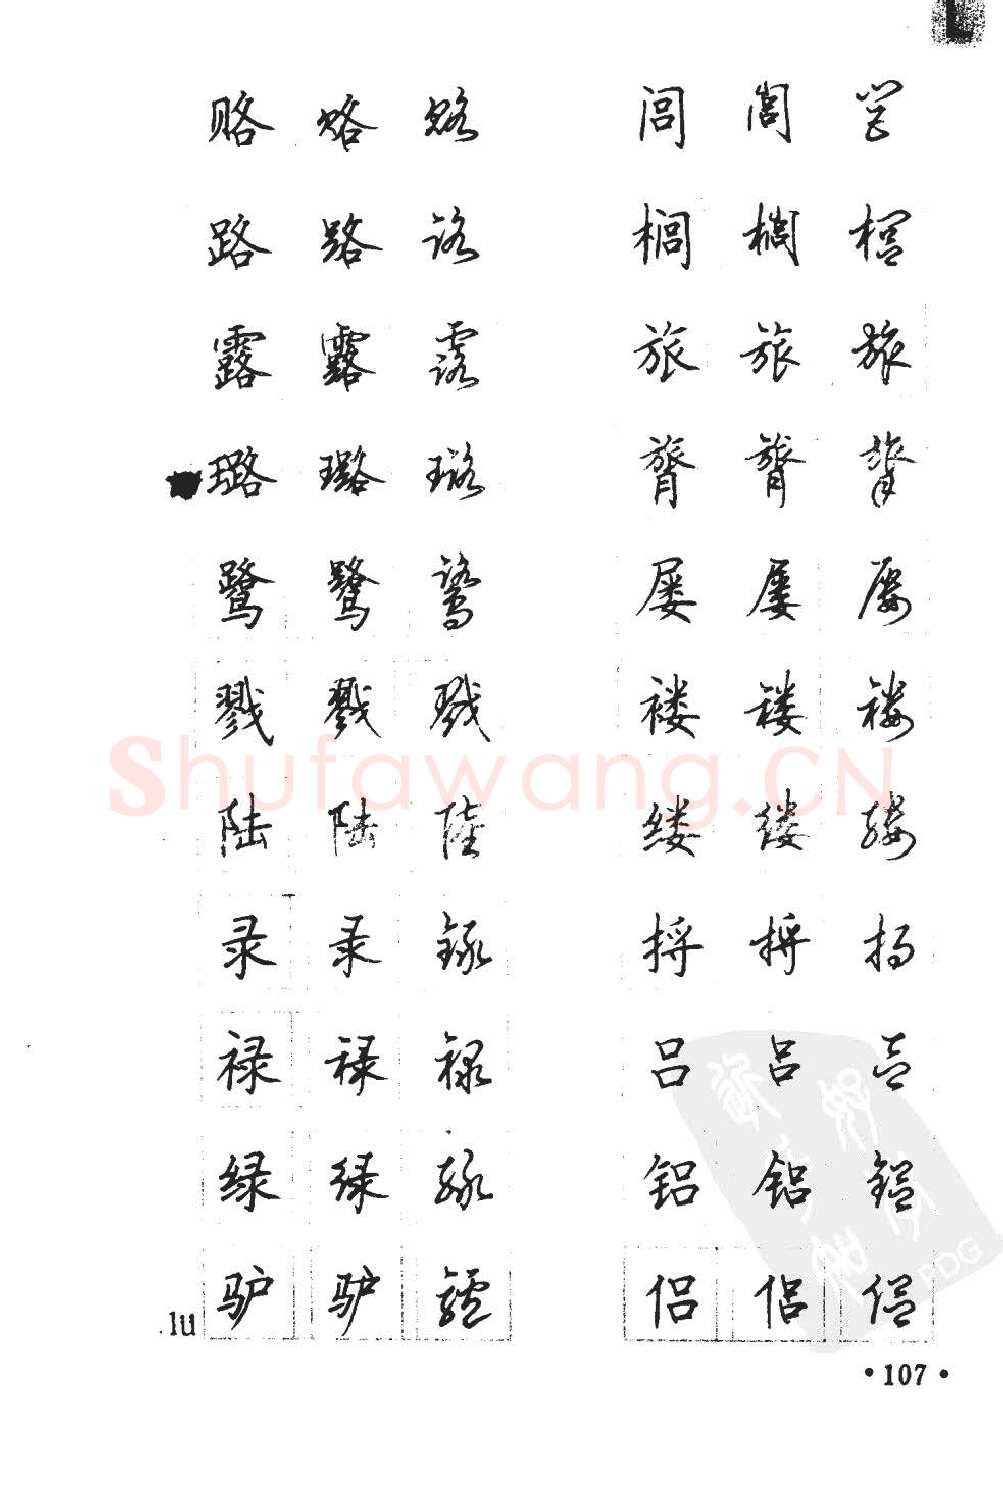 赂 赂 赂 闾 闾 闾
路 路 路 榈 榈 榈
露 露 露 旅 旅 旅
璐 璐 璐 膂 膂 膂
鹭 鹭 鹭 屡 屡 屡
戮 戮 戮 褛 褛 褛
Shufawang.CN
陆 陆 陸 缕 缕 缕
录 录 録 捋 捋 捋
禄 禄 禄 吕 吕 吕
绿 绿 绿 铝 铝 铝
PDG
lu 驴 驴 驢 侣 侣 侣
•107•